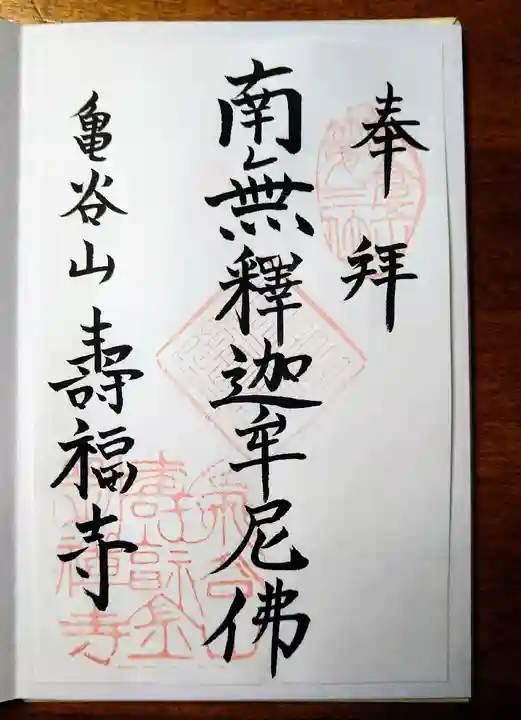 奉拝
南無釋迦牟尼佛
亀谷山 壽福寺